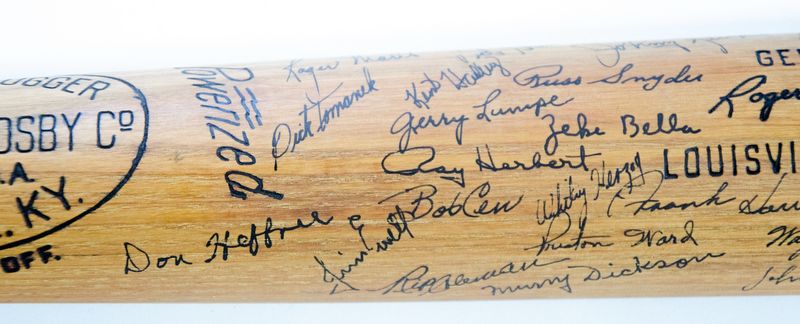 UGGER
OSBY Cº
.A.
. KY.
OFF.
Powerized
Roger Maris
Dick Tomanek
Russ Snyder
Jerry Lumpe
Zeke Bella
Ray Herbert
Bob Cerv
Whitey Herzog
Don Heffner
Preston Ward
Frank
Murry Dickson
GE
Roger
LOUISVI